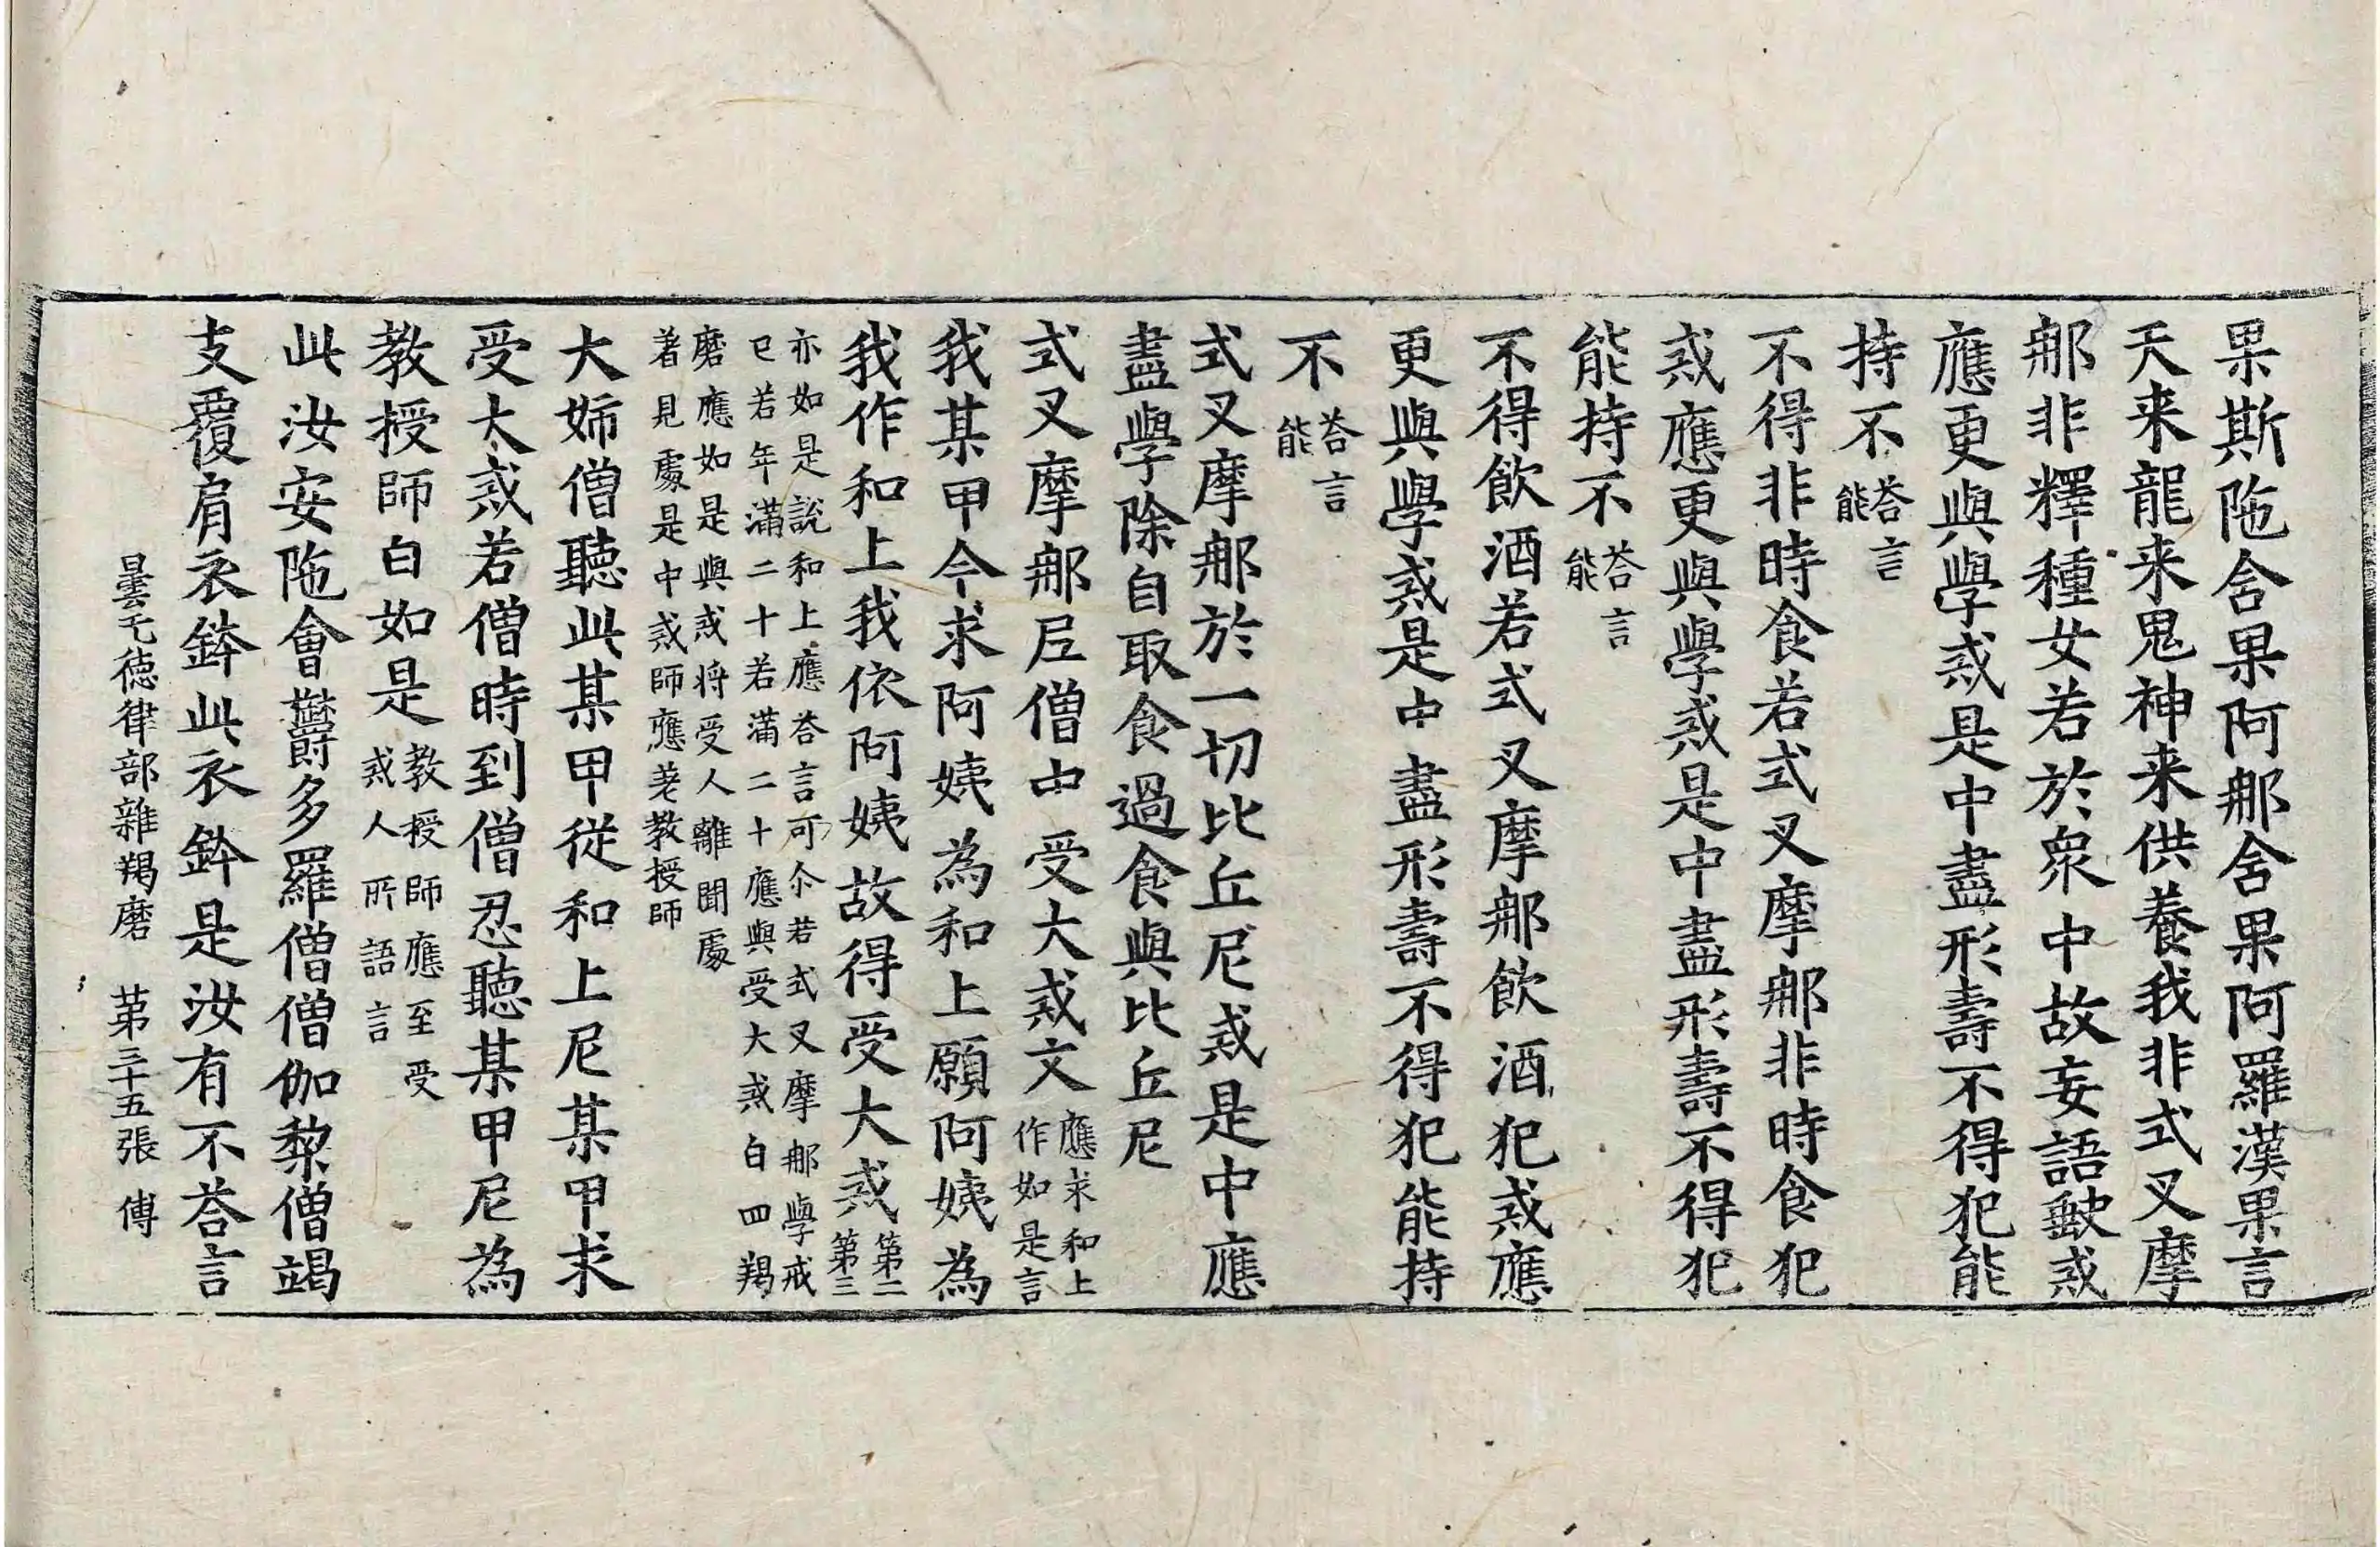 果斯陁舍果阿那舍果阿羅漢果言
天来龍来鬼神来供養我非式叉摩
那非釋種女若於衆中故妄語缺戒
應更與學戒是中盡形壽不得犯能
持不荅言能
不得非時食若式叉摩那非時食犯
戒應更與學戒是中盡形壽不得犯
能持不荅言能
不得飲酒若式叉摩那飲酒犯戒應
更與學戒是中盡形壽不得犯能持
不荅言能
式叉摩那於一切比丘尼戒是中應
盡學除自取食過食與比丘尼
式叉摩那尼僧中受大戒文應求和上作如是言
我某甲今求阿姨為和上願阿姨為
我作和上我依阿姨故得受大戒第二第三
亦如是說和上應荅言可尒若式叉摩那學戒
已若年滿二十若滿二十應與受大戒白四羯
磨應如是與戒将受人離聞處
著見處是中戒師應差教授師
大姉僧聽此某甲從和上尼某甲求
受大戒若僧時到僧忍聽某甲尼為
教授師白如是教授師應至受戒人所語言
此汝安陁會欝多羅僧僧伽梨僧竭
支覆肩衣鉢此衣鉢是汝有不荅言
曇无德律部雜羯磨 第三十五張 傅